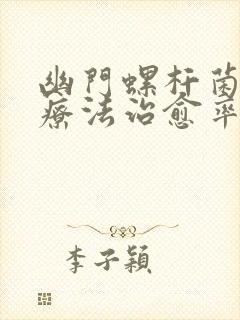 幽門螺杆菌
療法治愈率
李子穎